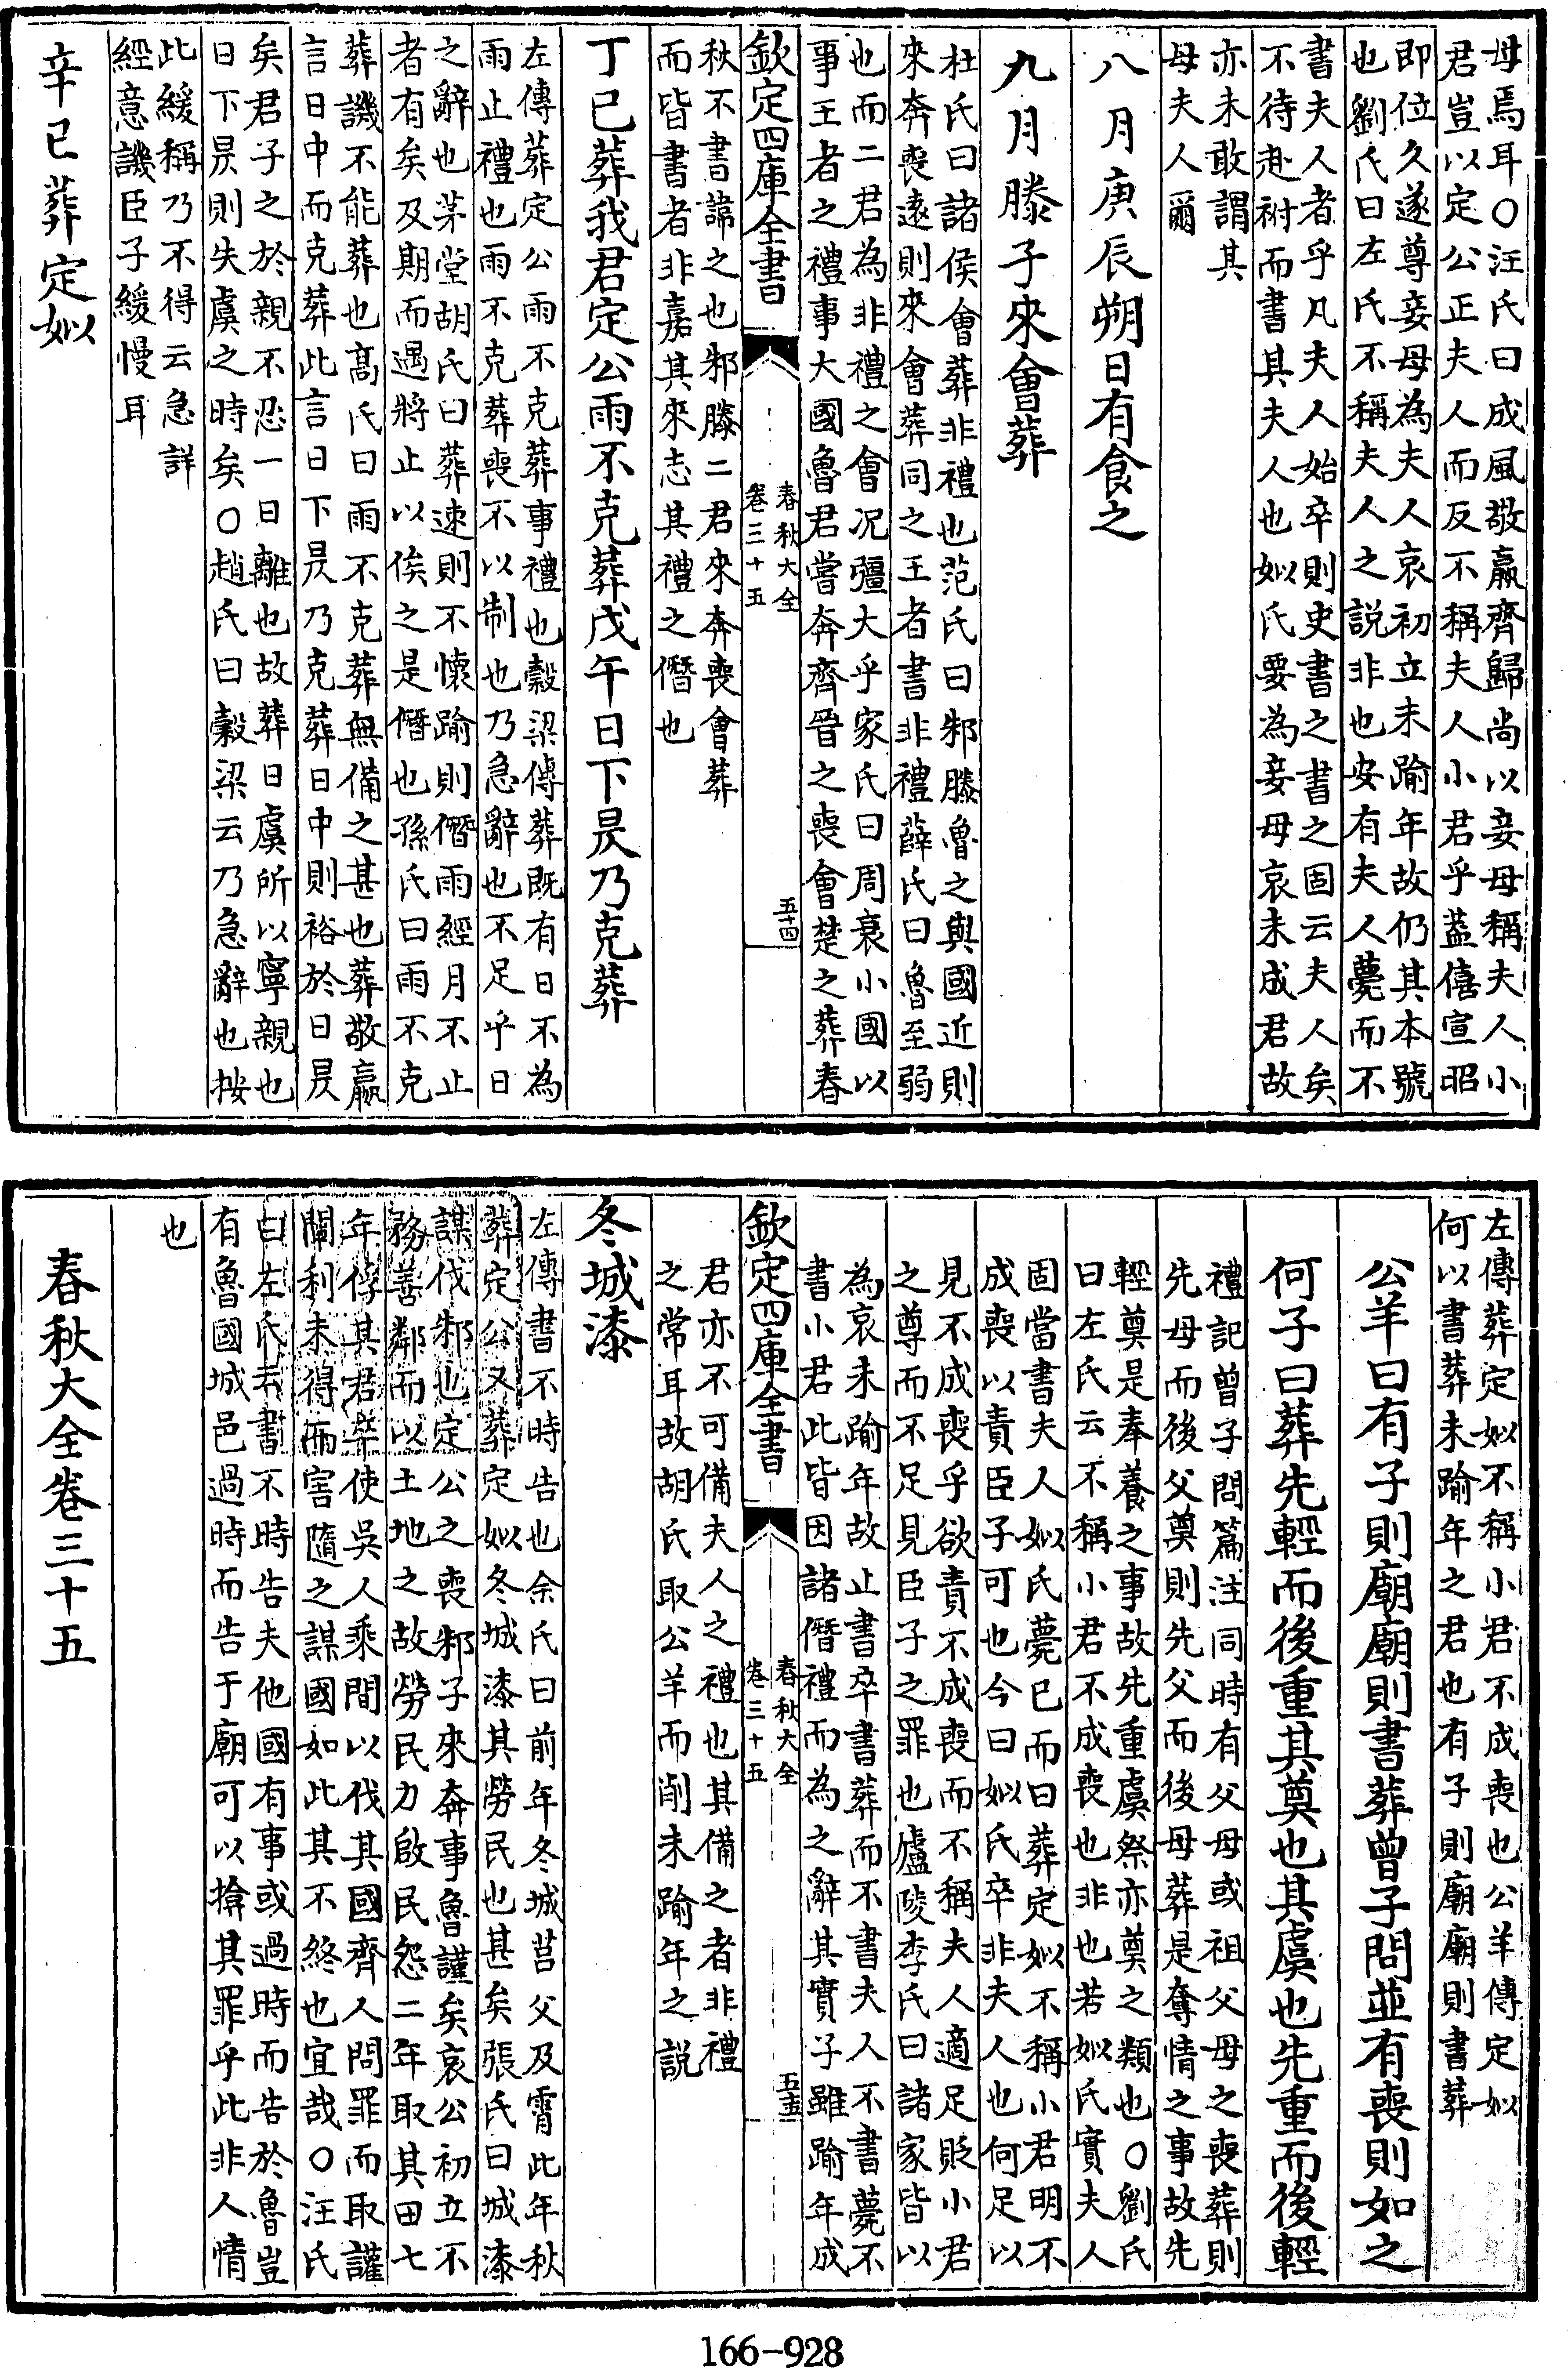 母焉耳〇汪氏曰成風敬嬴齊歸尚以妾母稱夫人小
君豈以定公正夫人而反不稱夫人小君乎蓋僖宣昭
即位久遂尊妾母為夫人哀初立未踰年故仍其本號
也劉氏曰左氏不稱夫人之説非也安有夫人薨而不
書夫人者乎凡夫人始卒則史書之書之固云夫人矣
不待赴祔而書其夫人也姒氏要為妾母哀未成君故
亦未敢謂其
母夫人爾
八月庚辰朔日有食之
九月滕子來會葬
杜氏曰諸侯會葬非禮也范氏曰邾滕魯之與國近則
來奔喪遠則來會葬同之王者書非禮薛氏曰魯至弱
也而二君為非禮之會况彊大乎家氏曰周衰小國以
事王者之禮事大國魯君嘗奔齊晉之喪會楚之葬春
欽定四庫全書
春秋大全
卷三十五
五十四
秋不書諱之也邾滕二君來奔喪會葬
而皆書者非嘉其來志其禮之僭也
丁巳葬我君定公雨不克葬戊午日下昃乃克葬
左傳葬定公雨不克葬事禮也穀梁傳葬既有日不為
雨止禮也雨不克葬喪不以制也乃急辭也不足乎日
之辭也茅堂胡氏曰葬速則不懷踰則僭雨經月不止
者有矣及期而遇將止以俟之是僭也孫氏曰雨不克
葬譏不能葬也髙氏曰雨不克葬無備之甚也葬敬嬴
言日中而克葬此言日下昃乃克葬日中則裕於日昃
矣君子之於親不忍一日離也故葬日虞所以寧親也
日下昃則失虞之時矣〇趙氏曰穀梁云乃急辭也按
此緩稱乃不得云急詳
經意譏臣子緩慢耳
辛巳葬定姒
左傳葬定姒不稱小君不成喪也公羊傳定姒
何以書葬未踰年之君也有子則廟廟則書葬
公羊曰有子則廟廟則書葬曾子問並有喪則如之
何子曰葬先輕而後重其奠也其虞也先重而後輕
禮記曽子問篇注同時有父母或祖父母之喪葬則
先母而後父奠則先父而後母葬是奪情之事故先
輕奠是奉養之事故先重虞祭亦奠之類也〇劉氏
曰左氏云不稱小君不成喪也非也若姒氏實夫人
固當書夫人姒氏薨已而曰葬定姒不稱小君明不
成喪以責臣子可也今曰姒氏卒非夫人也何足以
見不成喪乎欲責不成喪而不稱夫人適足貶小君
之尊而不足見臣子之罪也廬陵李氏曰諸家皆以
為哀未踰年故止書卒書葬而不書夫人不書薨不
書小君此皆因諸僭禮而為之辭其實子雖踰年成
欽定四庫全書
春秋大全
卷三十五
五十五
君亦不可備夫人之禮也其備之者非禮
之常耳故胡氏取公羊而削未踰年之説
冬城漆
左傳書不時告也余氏曰前年冬城莒父及霄此年秋
葬定公又葬定姒冬城漆其勞民也甚矣張氏曰城漆
謀伐邾也定公之喪邾子來奔事魯謹矣哀公初立不
務善鄰而以土地之故勞民力啟民怨二年取其田七
年俘其君卒使吳人乘間以伐其國齊人問罪而取讙
闡利未得而害隨之謀國如此其不終也宜哉〇汪氏
曰左氏云書不時告夫他國有事或過時而告於魯豈
有魯國城邑過時而告于廟可以揜其罪乎此非人情
也
春秋大全卷三十五
166-928